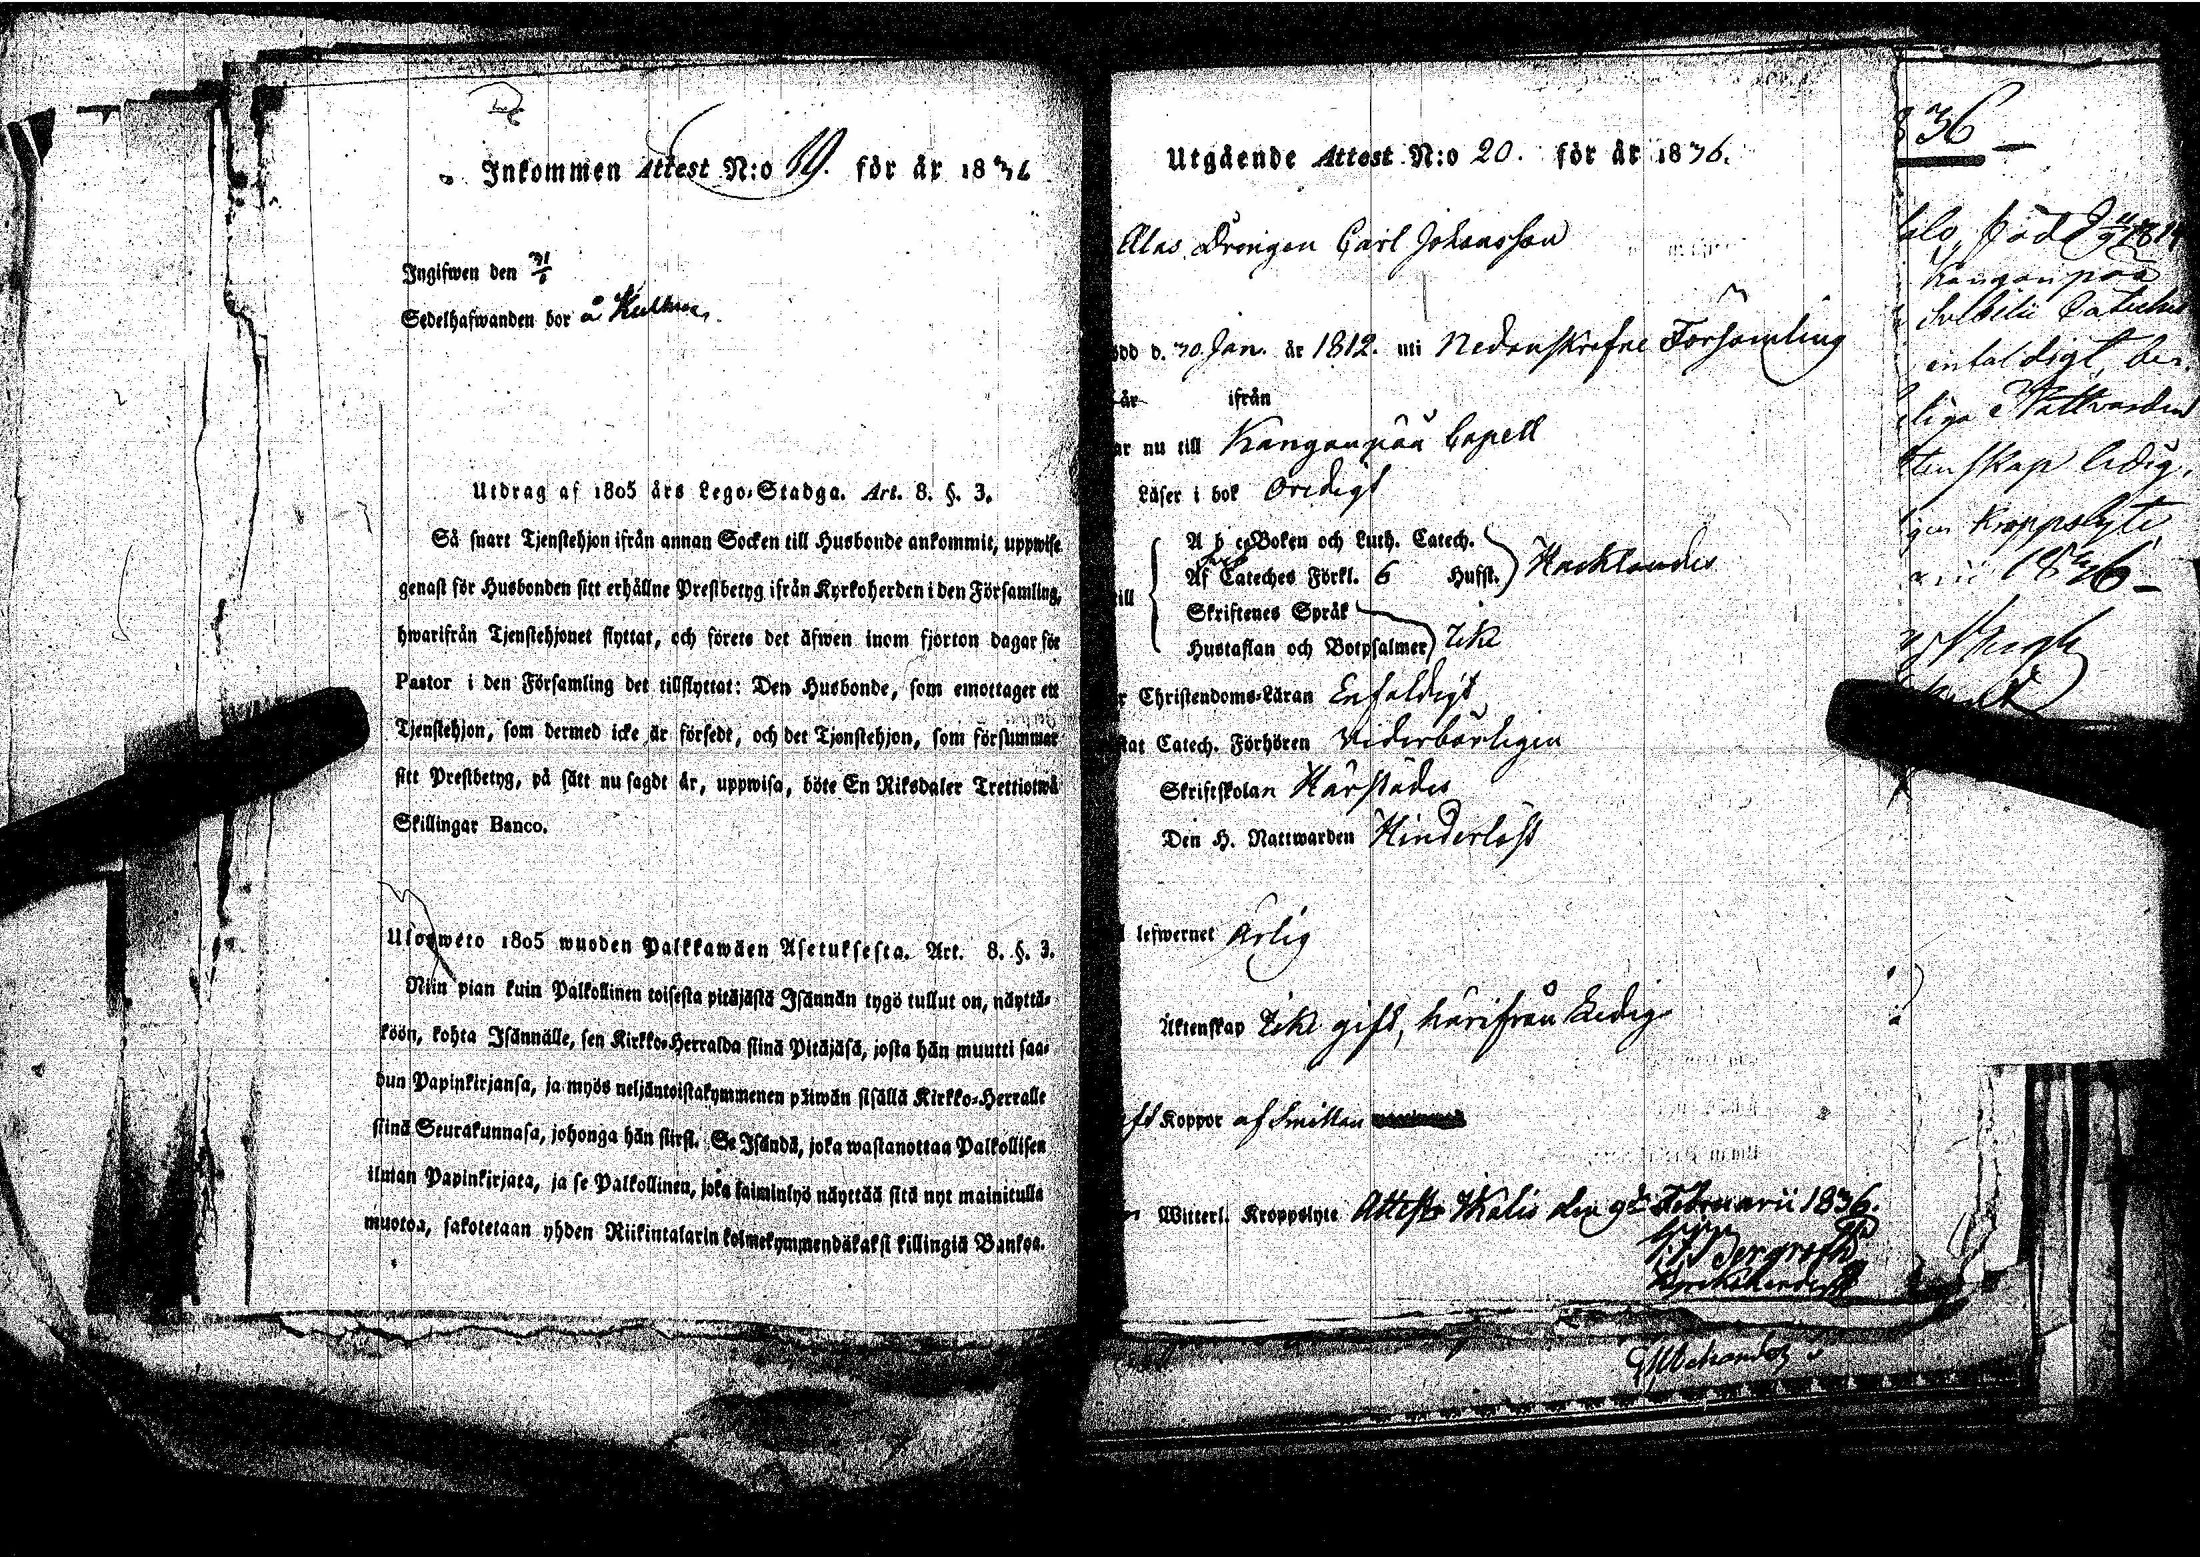 Inkommen Attest N:o 19. för år 1836
Ingifwen den 31/
Sedelhafwanden bor å
Utdrag af 1805 års Lego-Stadga. Art. 8. §. 3.
Så snart Tjenstehjon ifrån annan Socken till Husbonde ankommit, uppwise
genast för Husbonden sitt erhållne Prestbetyg ifrån Kyrkoherden i den Församling,
hwarifrån Tjenstehjonet flyttat, och förete det äfwen inom fjorton dagar för
Pastor i den Församling det tillflyttat: Den Husbonde, som emottager ett
Tjenstehjon, som dermed icke är försedt, och det Tjenstehjon, som försummar
sitt Prestbetyg, på sätt nu sagdt är, uppwisa, böte En Riksdaler Trettiotwå
Skillingar Banco.
Ulosweto 1805 wuoden Palkkawäen Asetuksesta. Art. 8. §. 3.
Niin pian kuin Palkollinen toisesta pitäjästä Isännän tygö tullut on, näyttä-
köön, kohta Isännälle, sen Kirkko-Herralda siinä Pitäjäsä, josta hän muutti saa-
dun Papinkirjansa, ja myös neljäntoistakymmenen päiwän sisällä Kirkko-Herralle
siinä Seurakunnasa, johonga hän siirsi. Se Isändä, joka wastanottaa Palkollisen
ilman Papinkirjata, ja se Palkollinen, joka laiminlyö näyttää sitä nyt mainitulla
muotoa, sakotetaan yhden Riikintalarin kolmekymmendäkaksi killingiä Bankoa.
Utgående Attest N:o 20. för år 1836.
Drengen Carl Johansson
ödd d. 30 Jan. år 1812. uti Nedanskrefne Församling
år ifrån
ar nu till Kanganpää Capell
Läser i bok Oredigt
A b c Boken och Luth. Catech.
Af Cateches Förkl. 6 Hufst. Hacklandes
till
Skriftenes Språk
Hustaflan och Botpsalmer Icke
r Christendoms-Läran Enfaldigt
stat Catech. Förhören Vederbörligen
Skriftskolan Härstädes
Den H. Nattwarden Hinderlöst
l lefwernet Ärlig
Äktenskap Icke gift, härifrån Ledig
aft Koppor af Smittan
Witterl. Kroppslyte Attest. Ikalis den 9de Februarii 1836.
Bergroth
Kyrkoherde
36
född
Kanganpää
enfaldigt, be
liga Nattvarden
tenskap ledig,
gen Kroppslyte
1836